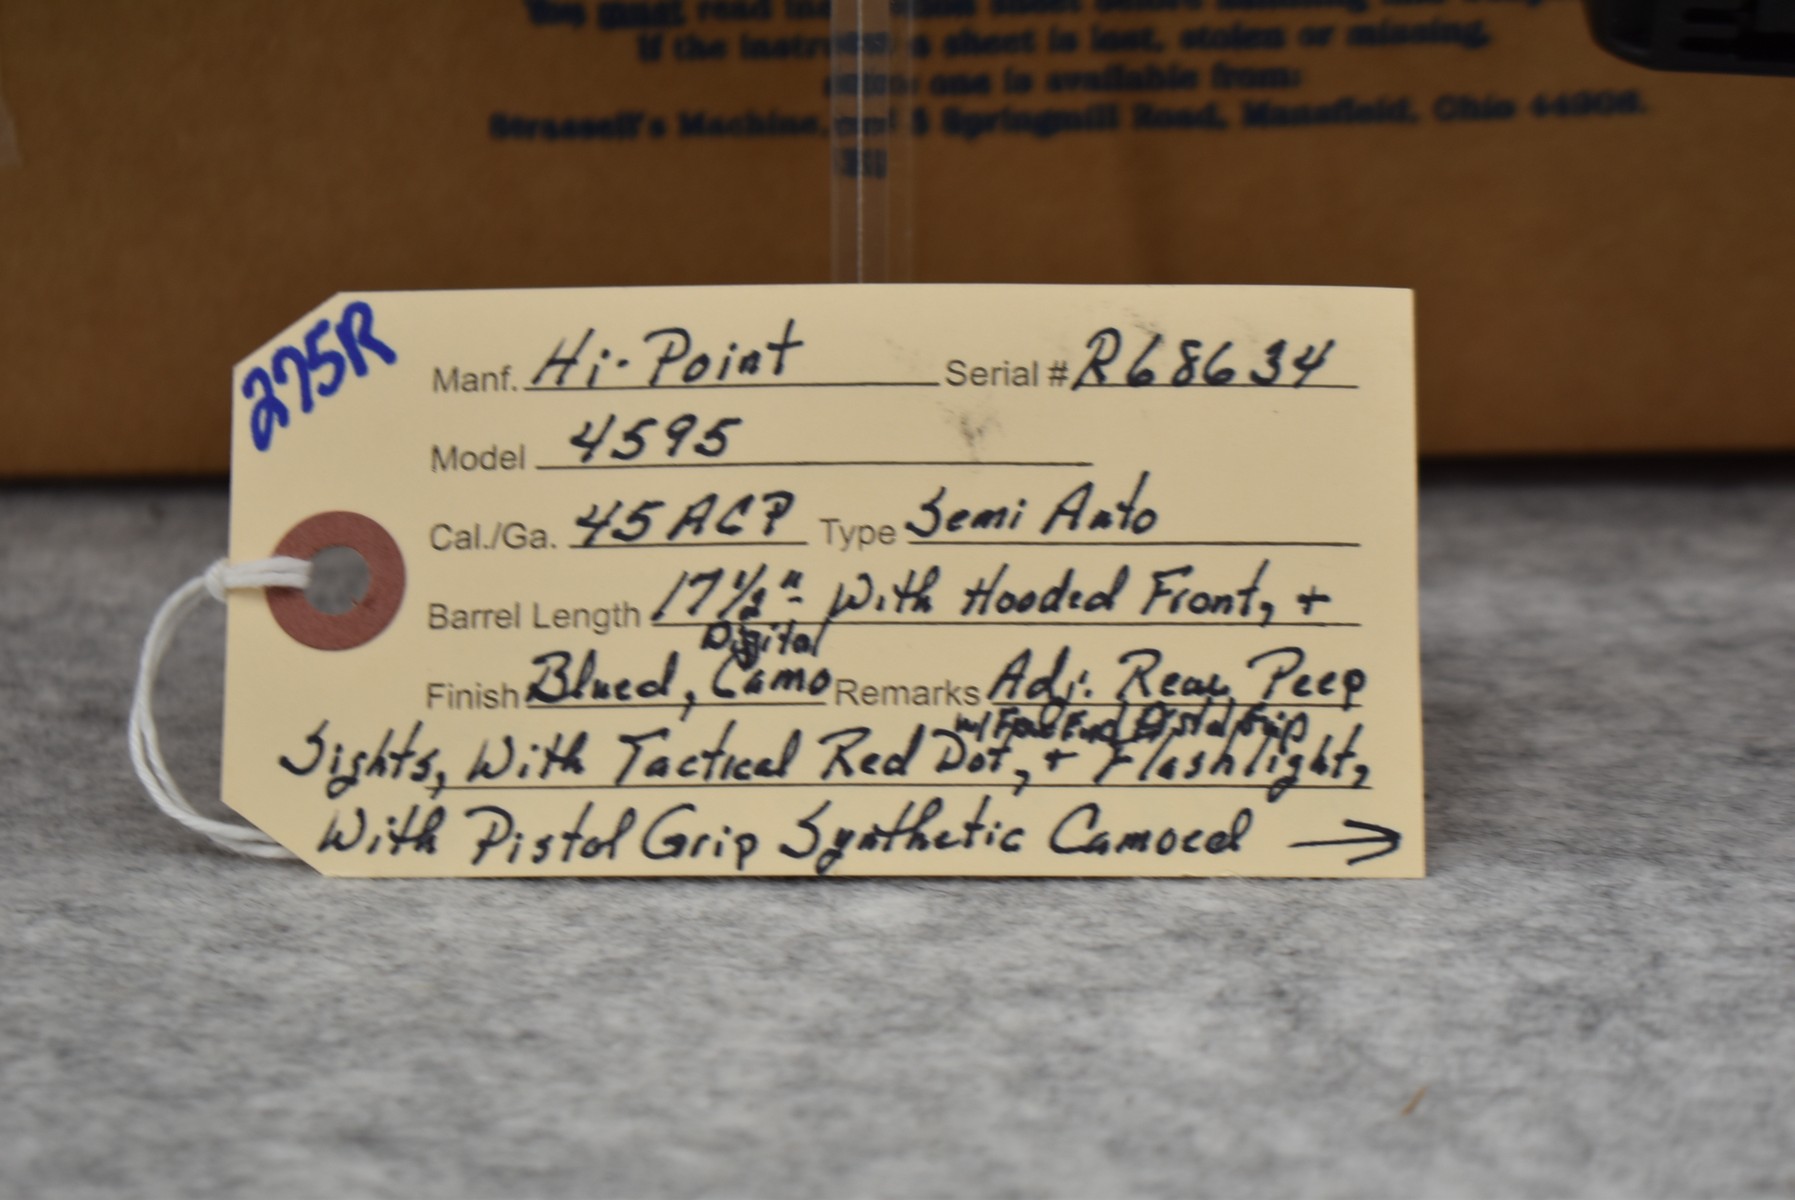 You must read instruction sheet before handling this
If the instruction sheet is lost, stolen or missing,
one is available from:
Strassell's Machine, Springmill Road, Mansfield, Ohio 44906.
275R
Manf. Hi-Point Serial # R68634
Model 4595
Cal./Ga. 45 ACP Type Semi Auto
Barrel Length 17 1/2" With Hooded Front, +
Digital
Finish Blued, Camo Remarks Adj. Rear Peep
w/ Fore End Pistol Grip
Sights, With Tactical Red Dot, + Flashlight,
With Pistol Grip Synthetic Camoed →